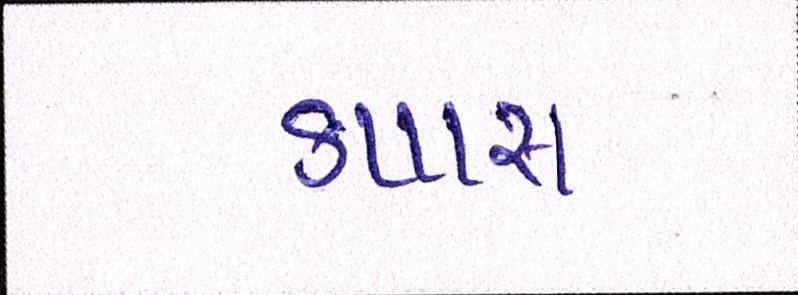 કપાસ